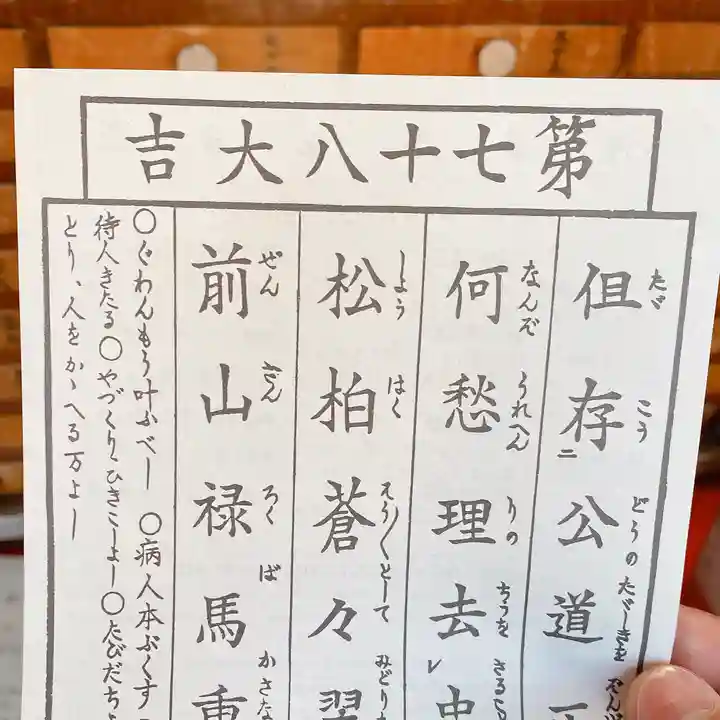 第七十八大吉
但存公道正
たゞ こう どうのたゞしきを ぞんじ
何愁理去忠
なんぞ うれへん りの ちうを さる
松柏蒼々翠
しよう はく そう〳〵として みどり
前山禄馬重
ぜん ざん ろく ば かさな
〇ぐわんもう叶ふべし 〇病人本ぶくす
待人きたる〇やづくりひきこしよし〇たびだちよ
とり、人をかゝへる万よし